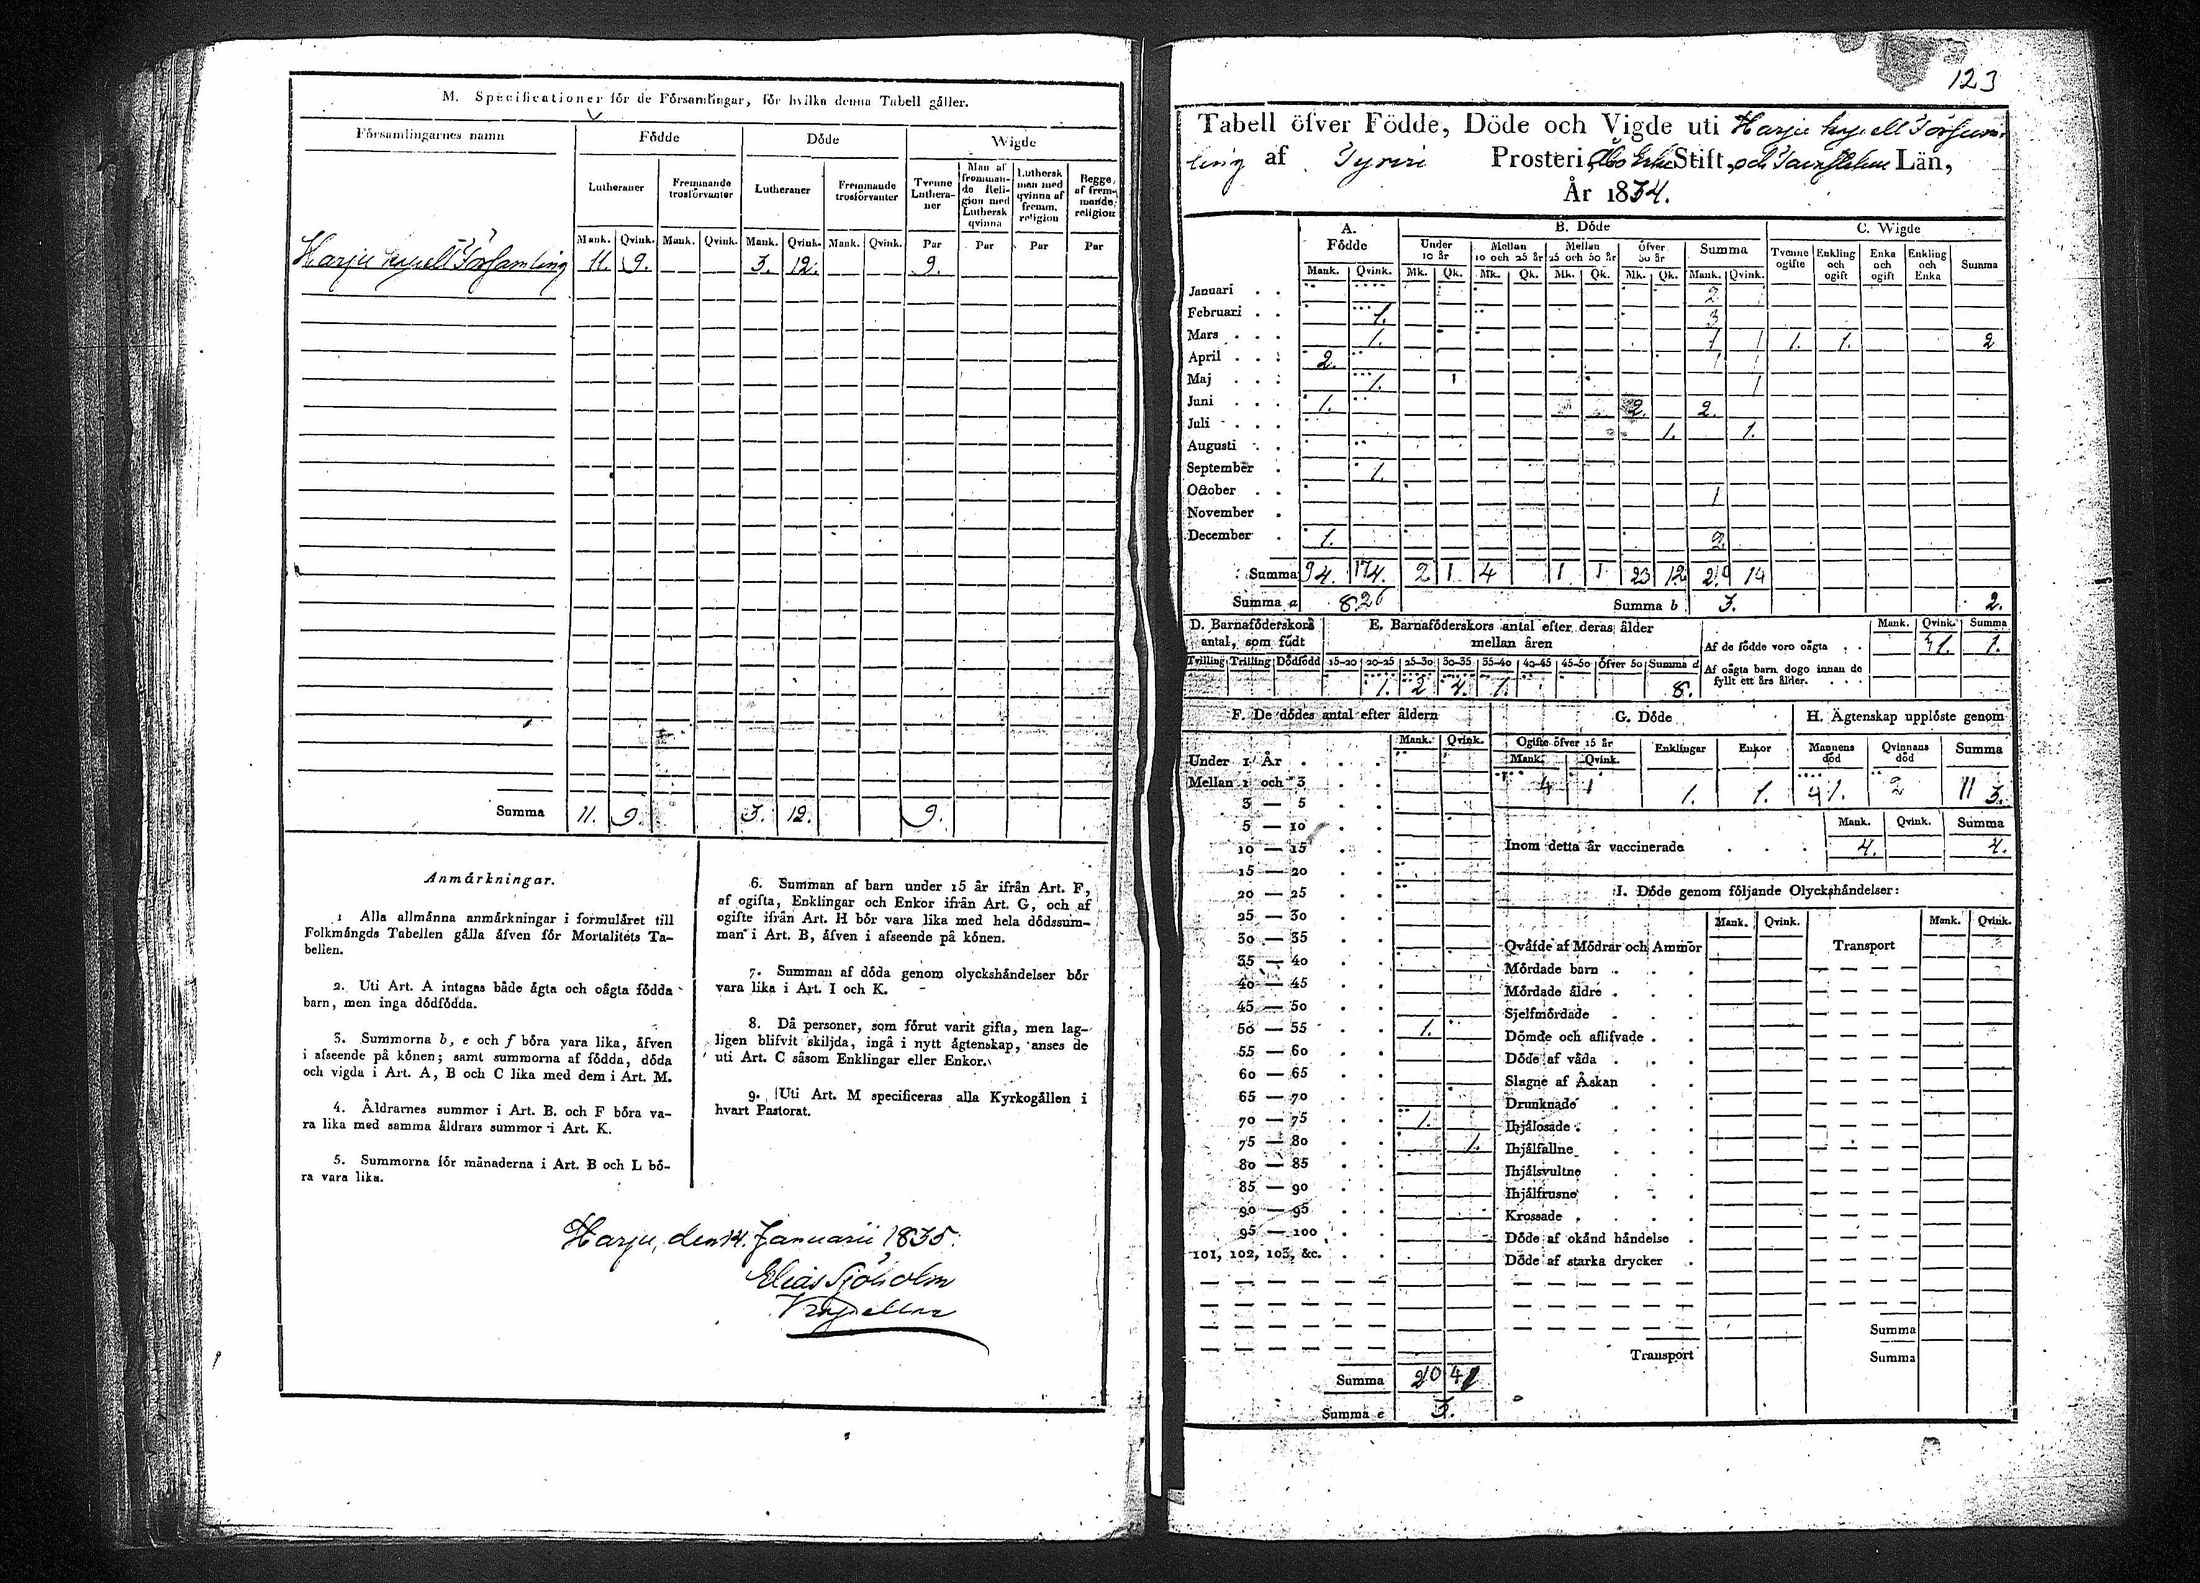 M. Specificationer för de Församlingar, för hvilka denna Tabell gäller.
Församlingarnes namn
Födde
Döde
Wigde
Lutheraner
Fremmande trosförvanter
Lutheraner
Fremmande trosförvanter
Tvenne Lutheraner
Man af fremmande Religion med Luthersk qvinna
Luthersk man med qvinna af fremm. religion
Begge af fremmande religion
Mank. Qvink. Mank. Qvink. Mank. Qvink. Mank. Qvink. Par Par Par Par
Harju kapell Församling 11. 9. 3. 12. 9.
Summa 11. 9. 3. 12. 9.
Anmärkningar.
1 Alla allmänna anmärkningar i formuläret till
Folkmängds Tabellen gälla äfven för Mortalitets Ta-
bellen.
2. Uti Art. A intagas både ägta och oägta födda
barn, men inga dödfödda.
3. Summorna b, e och f böra vara lika, äfven
i afseende på könen; samt summorna af födda, döda
och vigda i Art. A, B och C lika med dem i Art. M.
4. Äldrarnes summor i Art. B. och F böra va-
ra lika med samma äldrars summor i Art. K.
5. Summorna för månaderna i Art. B och L bö-
ra vara lika.
6. Summan af barn under 15 år ifrån Art. F,
af ogifta, Enklingar och Enkor ifrån Art. G, och af
ogifte ifrån Art. H bör vara lika med hela dödssum-
man i Art. B, äfven i afseende på könen.
7. Summan af döda genom olyckshändelser bör
vara lika i Art. I och K.
8. Då personer, som förut varit gifta, men lag-
ligen blifvit skiljda, ingå i nytt ägtenskap, anses de
uti Art. C såsom Enklingar eller Enkor.
9. Uti Art. M specificeras alla Kyrkogällen i
hvart Pastorat.
Harju, den 14. Januarii 1835.
Elias Sjöholm
Kapellan
123
Tabell öfver Födde, Döde och Vigde uti Harju kapell Församling
af Prosteri, Åbo Erke Stift, och Tavastehus Län,
År 1834.
A. Födde
B. Döde
C. Wigde
Under 10 år
Mellan 10 och 25 år
Mellan 25 och 50 år
Öfver 50 år
Summa
Tvenne ogifte
Enkling och ogift
Enka och ogift
Enkling och Enka
Summa
Mank. Qvink. Mk. Qk. Mk. Qk. Mk. Qk. Mk. Qk. Mank. Qvink.
Januari 2
Februari 1. 3
Mars 1. 1 1 1. 1. 2
April 2. 1 1
Maj 1. 1 1
Juni 1. 2. 2.
Juli 1. 1.
Augusti
September 1.
October 1
November
December 1. 2
Summa
Summa a
Summa b 3. 2.
D. Barnaföderskors antal, som födt
E. Barnaföderskors antal efter deras ålder
mellan åren
Tvilling Trilling Dödfödd 15-20 20-25 25-30 30-35 35-40 40-45 45-50 Öfver 50 Summa d
1. 2 4. 1. 8.
Mank. Qvink. Summa
Af de födde voro oägta 1. 1.
Af oägta barn dogo innan de
fyllt ett års ålder.
F. De dödes antal efter åldern
Mank. Qvink.
Under 1 År
Mellan 1 och 3
3 — 5
5 — 10
10 — 15
15 — 20
20 — 25
25 — 30
30 — 35
35 — 40
40 — 45
45 — 50
50 — 55 1.
55 — 60
60 — 65
65 — 70
70 — 75 1.
75 — 80 1.
80 — 85
85 — 90
90 — 95
95 — 100
101, 102, 103, &c.
Summa
Summa e 3.
G. Döde
Ogifte öfver 15 år
Mank. Qvink.
Enklingar
Enkor
4 1 1. 1.
H. Ägtenskap upplöste genom
Mannens död
Qvinnans död
Summa
Mank. Qvink. Summa
Inom detta år vaccinerade 4. 4.
I. Döde genom följande Olyckshändelser:
Mank. Qvink. Mank. Qvink.
Qväfde af Mödrar och Ammor
Transport
Mördade barn
Mördade äldre
Sjelfmördade
Dömde och aflifvade
Döde af våda
Slagne af Åskan
Drunknade
Ihjälosade
Ihjälfallne
Ihjälsvultne
Ihjälfrusne
Krossade
Döde af okänd händelse
Döde af starka drycker
Summa
Transport
Summa